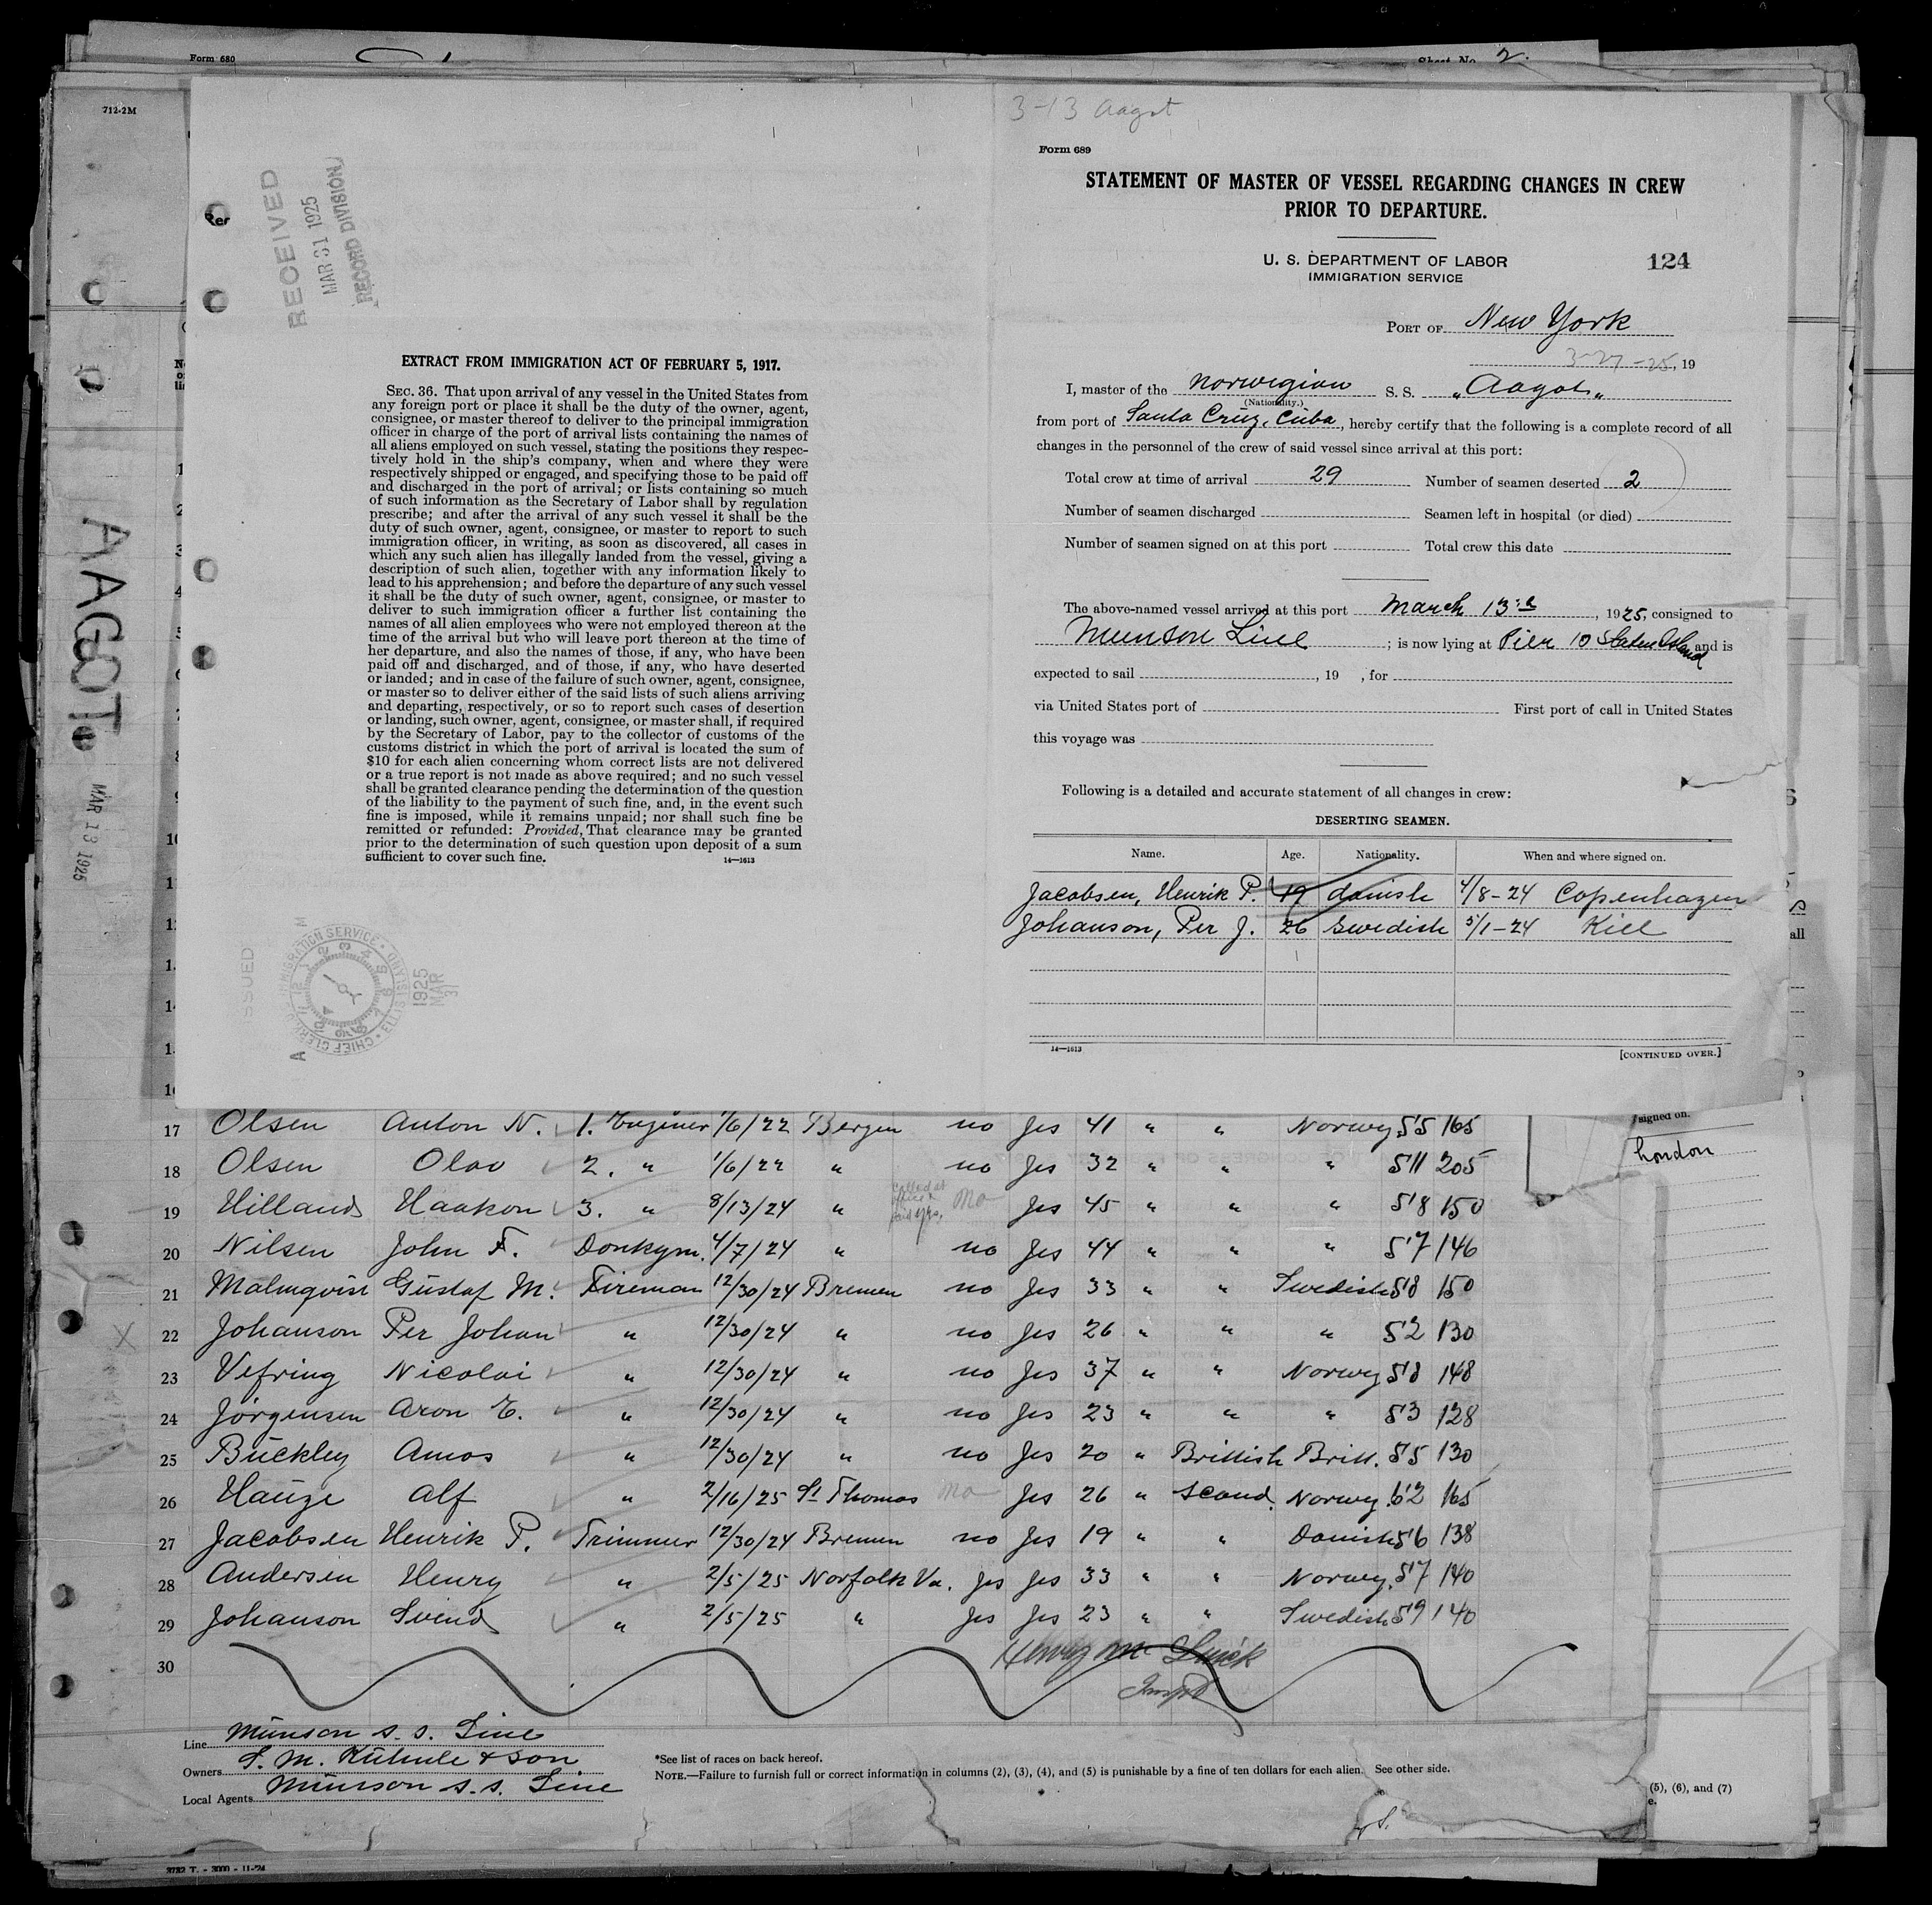 Form 680
Sheet No. 2.
712-2M
AAGOT
MAR 13 1925
RECEIVED
MAR 31 1925
RECORD DIVISION
EXTRACT FROM IMMIGRATION ACT OF FEBRUARY 5, 1917.
SEC. 36. That upon arrival of any vessel in the United States from
any foreign port or place it shall be the duty of the owner, agent,
consignee, or master thereof to deliver to the principal immigration
officer in charge of the port of arrival lists containing the names of
all aliens employed on such vessel, stating the positions they respec-
tively hold in the ship's company, when and where they were
respectively shipped or engaged, and specifying those to be paid off
and discharged in the port of arrival; or lists containing so much
of such information as the Secretary of Labor shall by regulation
prescribe; and after the arrival of any such vessel it shall be the
duty of such owner, agent, consignee, or master to report to such
immigration officer, in writing, as soon as discovered, all cases in
which any such alien has illegally landed from the vessel, giving a
description of such alien, together with any information likely to
lead to his apprehension; and before the departure of any such vessel
it shall be the duty of such owner, agent, consignee, or master to
deliver to such immigration officer a further list containing the
names of all alien employees who were not employed thereon at the
time of the arrival but who will leave port thereon at the time of
her departure, and also the names of those, if any, who have been
paid off and discharged, and of those, if any, who have deserted
or landed; and in case of the failure of such owner, agent, consignee,
or master so to deliver either of the said lists of such aliens arriving
and departing, respectively, or so to report such cases of desertion
or landing, such owner, agent, consignee, or master shall, if required
by the Secretary of Labor, pay to the collector of customs of the
customs district in which the port of arrival is located the sum of
$10 for each alien concerning whom correct lists are not delivered
or a true report is not made as above required; and no such vessel
shall be granted clearance pending the determination of the question
of the liability to the payment of such fine, and, in the event such
fine is imposed, while it remains unpaid; nor shall such fine be
remitted or refunded: Provided, That clearance may be granted
prior to the determination of such question upon deposit of a sum
sufficient to cover such fine.
14—1613
ISSUED
IMMIGRATION SERVICE
ELLIS ISLAND
CHIEF CLERK
1925 MAR 31
3-13 Aagot
Form 689
STATEMENT OF MASTER OF VESSEL REGARDING CHANGES IN CREW
PRIOR TO DEPARTURE.
U. S. DEPARTMENT OF LABOR
IMMIGRATION SERVICE
124
PORT OF New York
3-27-25, 19
I, master of the Norwegian S. S. "Aagot"
(Nationality.)
from port of Santa Cruz, Cuba, hereby certify that the following is a complete record of all
changes in the personnel of the crew of said vessel since arrival at this port:
Total crew at time of arrival 29 Number of seamen deserted 2
Number of seamen discharged Seamen left in hospital (or died)
Number of seamen signed on at this port Total crew this date
The above-named vessel arrived at this port March 13th, 1925, consigned to
Munson Line; is now lying at Pier 10 Staten Island and is
expected to sail , 19 , for
via United States port of First port of call in United States
this voyage was
Following is a detailed and accurate statement of all changes in crew:
DESERTING SEAMEN.
Name. Age. Nationality. When and where signed on.
Jacobsen, Henrik P. 19 danish 4/8-24 Copenhagen
Johanson, Per J. 26 Swedish 5/1-24 Kiel
14—1613
[CONTINUED OVER.]
17 Olsen Anton N. 1. Enginer 1/6/22 Bergen no Jes 41 " " Norwg. 5'5 165
18 Olsen Olav 2. " 1/6/22 " no Jes 32 " " " 5'11 205
19 Hilland Haakon 3. " 8/13/24 " no Jes 45 " " " 5'8 150
20 Nilsen John F. Donkym. 4/7/24 " no Jes 44 " " " 5'7 146
21 Malmqvist Gustaf M. Fireman 12/30/24 Bremen no Jes 33 " " Swedish 5'8 150
22 Johanson Per Johan " 12/30/24 " no Jes 26 " " " 5'2 130
23 Vefring Nicolai " 12/30/24 " no Jes 37 " " Norwg 5'8 148
24 Jørgensen Aron E. " 12/30/24 " no Jes 23 " " " 5'3 128
25 Buckley Amos " 12/30/24 " no Jes 20 " Brittish Britt. 5'5 130
26 Hauge Alf " 2/16/25 St Thomas no Jes 26 " Scand. Norwg. 6'2 165
27 Jacobsen Henrik P. Trimmer 12/30/24 Bremen no Jes 19 " " Danish 5'6 138
28 Andersen Henry " 2/5/25 Norfolk Va. Jes Jes 33 " " Norwg. 5'7 140
29 Johanson Svend " 2/5/25 " Jes Jes 23 " " Swedish 5'9 140
30
signed on.
London
Line Munson S. S. Line
Owners S. M. Kuhnle & Son
Local Agents Munson S. S. Line
*See list of races on back hereof.
NOTE.—Failure to furnish full or correct information in columns (2), (3), (4), and (5) is punishable by a fine of ten dollars for each alien. See other side.
(5), (6), and (7)
3782 T. - 3000 - 11-24